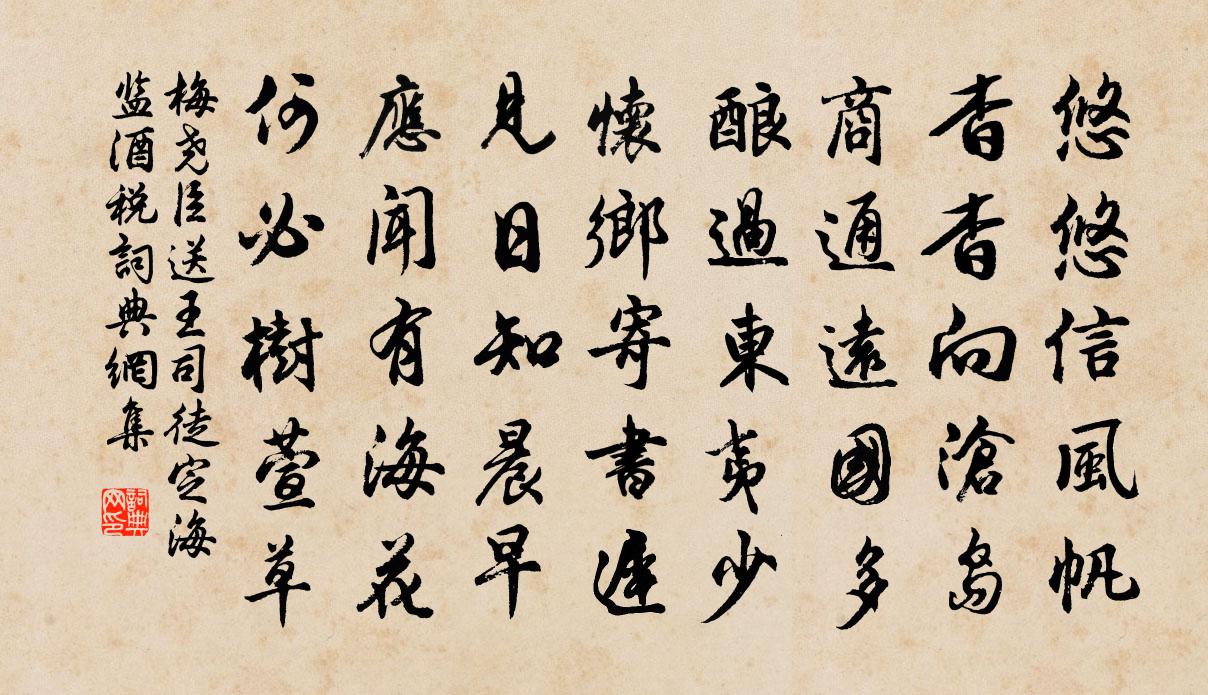 悠悠信風帆
杳杳向滄島
商通遠國多
酿過東夷少
懷鄉寄書遲
見日知晨早
應聞有海花
何必樹萱草
梅尧臣送王司徒定海
监酒税詞典網集
詞典
网印